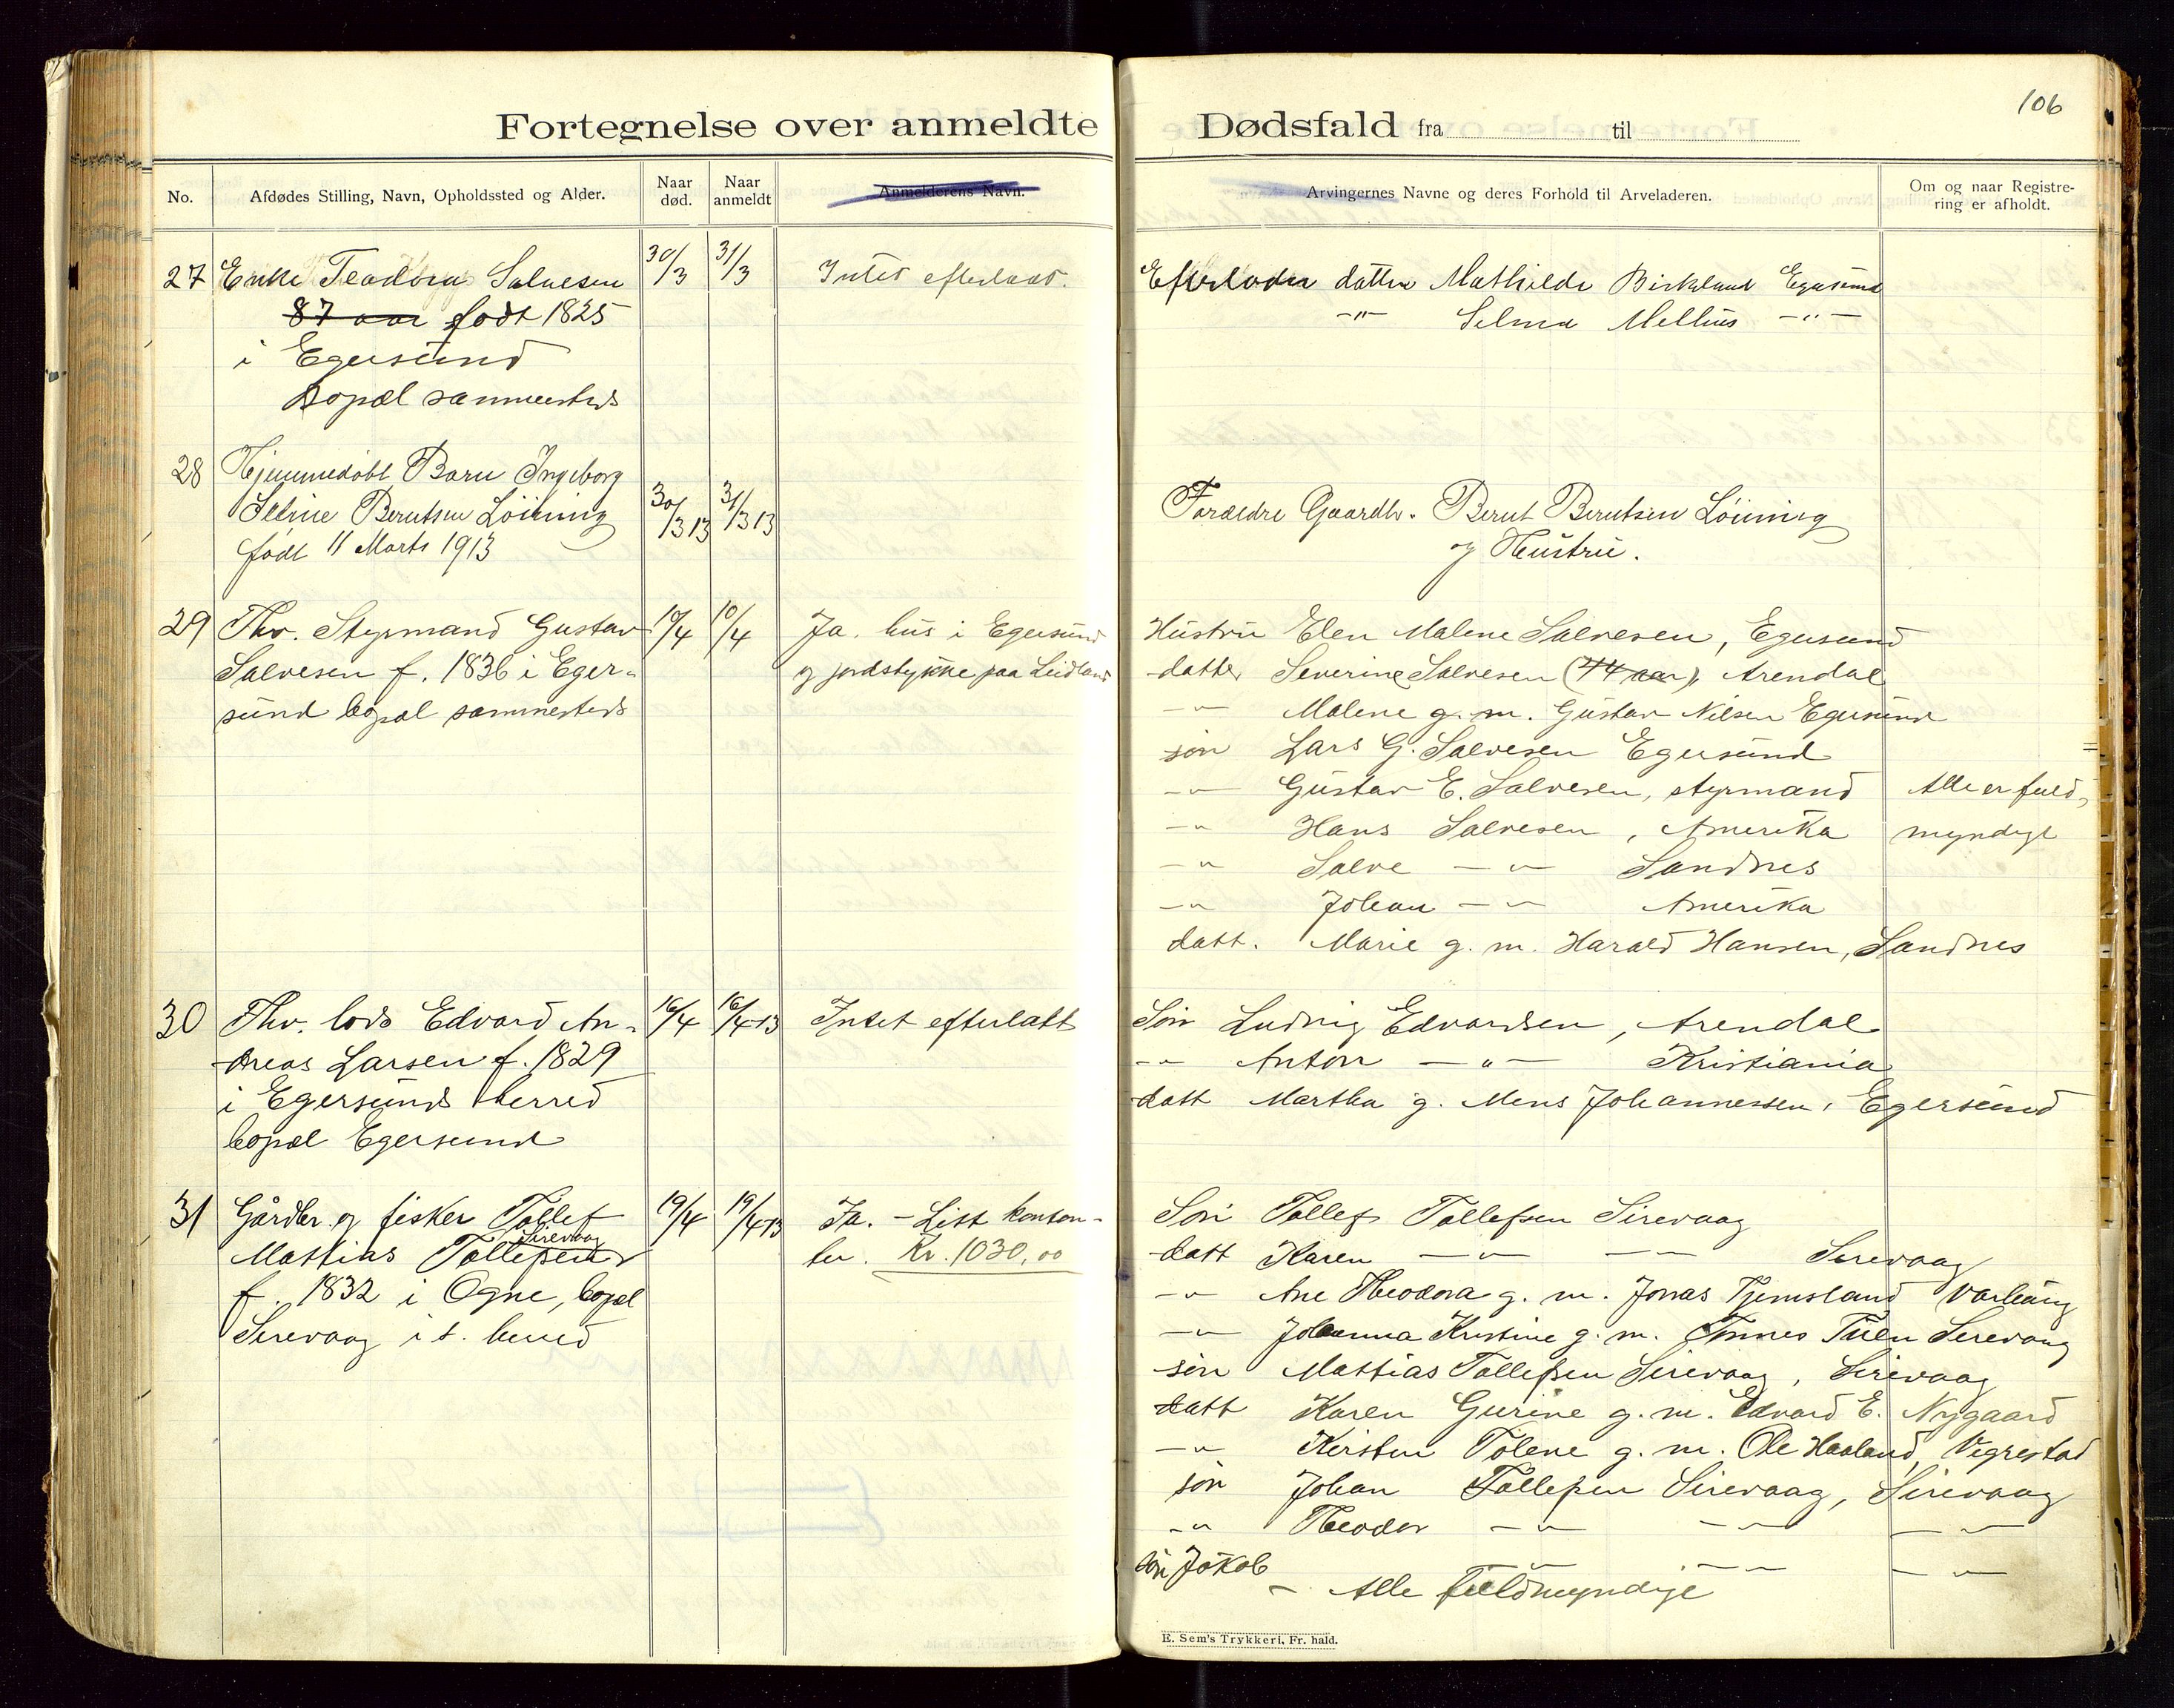 106
Fortegnelse over anmeldte Dødsfald fra til
No.
Afdødes Stilling, Navn, Opholdssted og Alder.
Naar død.
Naar anmeldt
Anmelderens Navn.
Arvingernes Navne og deres Forhold til Arveladeren.
Om og naar Registre-
ring er afholdt.
27 Enke Teodora Salvesen 30/3 31/3 Intet efterladt.
87 aar født 1825
i Egersund
Bopæl sammesteds
Efterlader datter Mathilde Birkeland Egersund
-"- Selma Mellius -"-
28 Hjemmedøbt Barn Ingeborg
Berntsen Løining 30/3 13 31/3 13
født 11 Marts 1913
Forældre Gaardbr. Bernt Berntsen Løining
og Hustru.
29 Fhv. Styrmand Gustav 10/4 10/4 Ja. hus i Egersund
Salvesen f. 1836 i Eger- og jordstykke paa Leidland
sund bopæl sammesteds
Hustru Elen Malene Salvesen, Egersund
datter Severine Salvesen (44 aar), Arendal
-"- Malene g. m. Gustav Nilsen Egersund
søn Lars G. Salvesen Egersund
-"- Gustav E. Salvesen, styrmand Alle er fuld-
-"- Hans Salvesen, Amerika myndige
-"- Salve -"- Sandnes
-"- Johan -"- Amerika
datt. Marie g. m. Harald Hansen, Sandnes
30 Fhv. lods Edvard An- 16/4 16/4-13 Intet efterlatt
dreas Larsen f. 1829
i Egersunds herred
bopæl Egersund
Søn Ludvig Edvardsen, Arendal
-"- Anton -"- Kristiania
datt Martha g. Mons Johannessen, Egersund
31 Gårdbr. og fisker Tollef 19/4 19/4-13 Ja. - Litt kontan-
Sirevaag
Mattias Tollefsen ter. Kr. 1030,00
f. 1832 i Ogne, bopæl
Sirevaag i s. herred
Søn Tollef Tollefsen Sirevaag
datt Karen -"- -"- Sirevaag
-"- Ane Theodora g. m. Jonas Tjemsland Varhaug
-"- Johanna Kristine g. m. Tønnes Tuen Sirevaag
søn Mattias Tollefsen Sirevaag, Sirevaag
datt Karen Gurine g. m. Edvard E. Nygaard
-"- Kirsten Tolene g. m. Ole Haaland, Vigrestad
søn Johan Tollefsen Sirevaag, Sirevaag
-"- Theodor -"- -"- -"-
søn Jakob -"- -"- -"-
- Alle fuldmyndige
E. Sem's Trykkeri, Fr. hald.